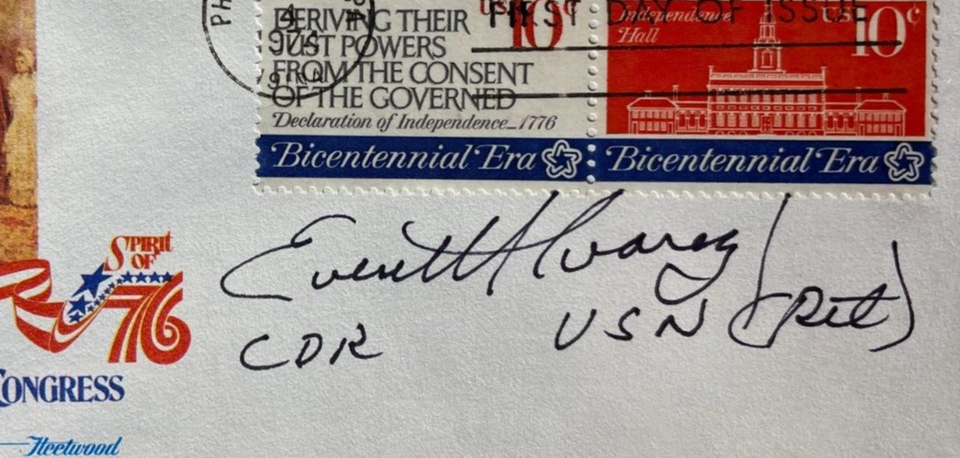 PH
4
JUL
9AM
DERIVING THEIR
JUST POWERS
FROM THE CONSENT
OF THE GOVERNED
Declaration of Independence 1776
US 10c
Bicentennial Era
FIRST DAY OF ISSUE
Independence
Hall
US 10c
Bicentennial Era
SPIRIT
OF
76
CONGRESS
Fleetwood
Everett Alvarez
CDR USN (Ret)